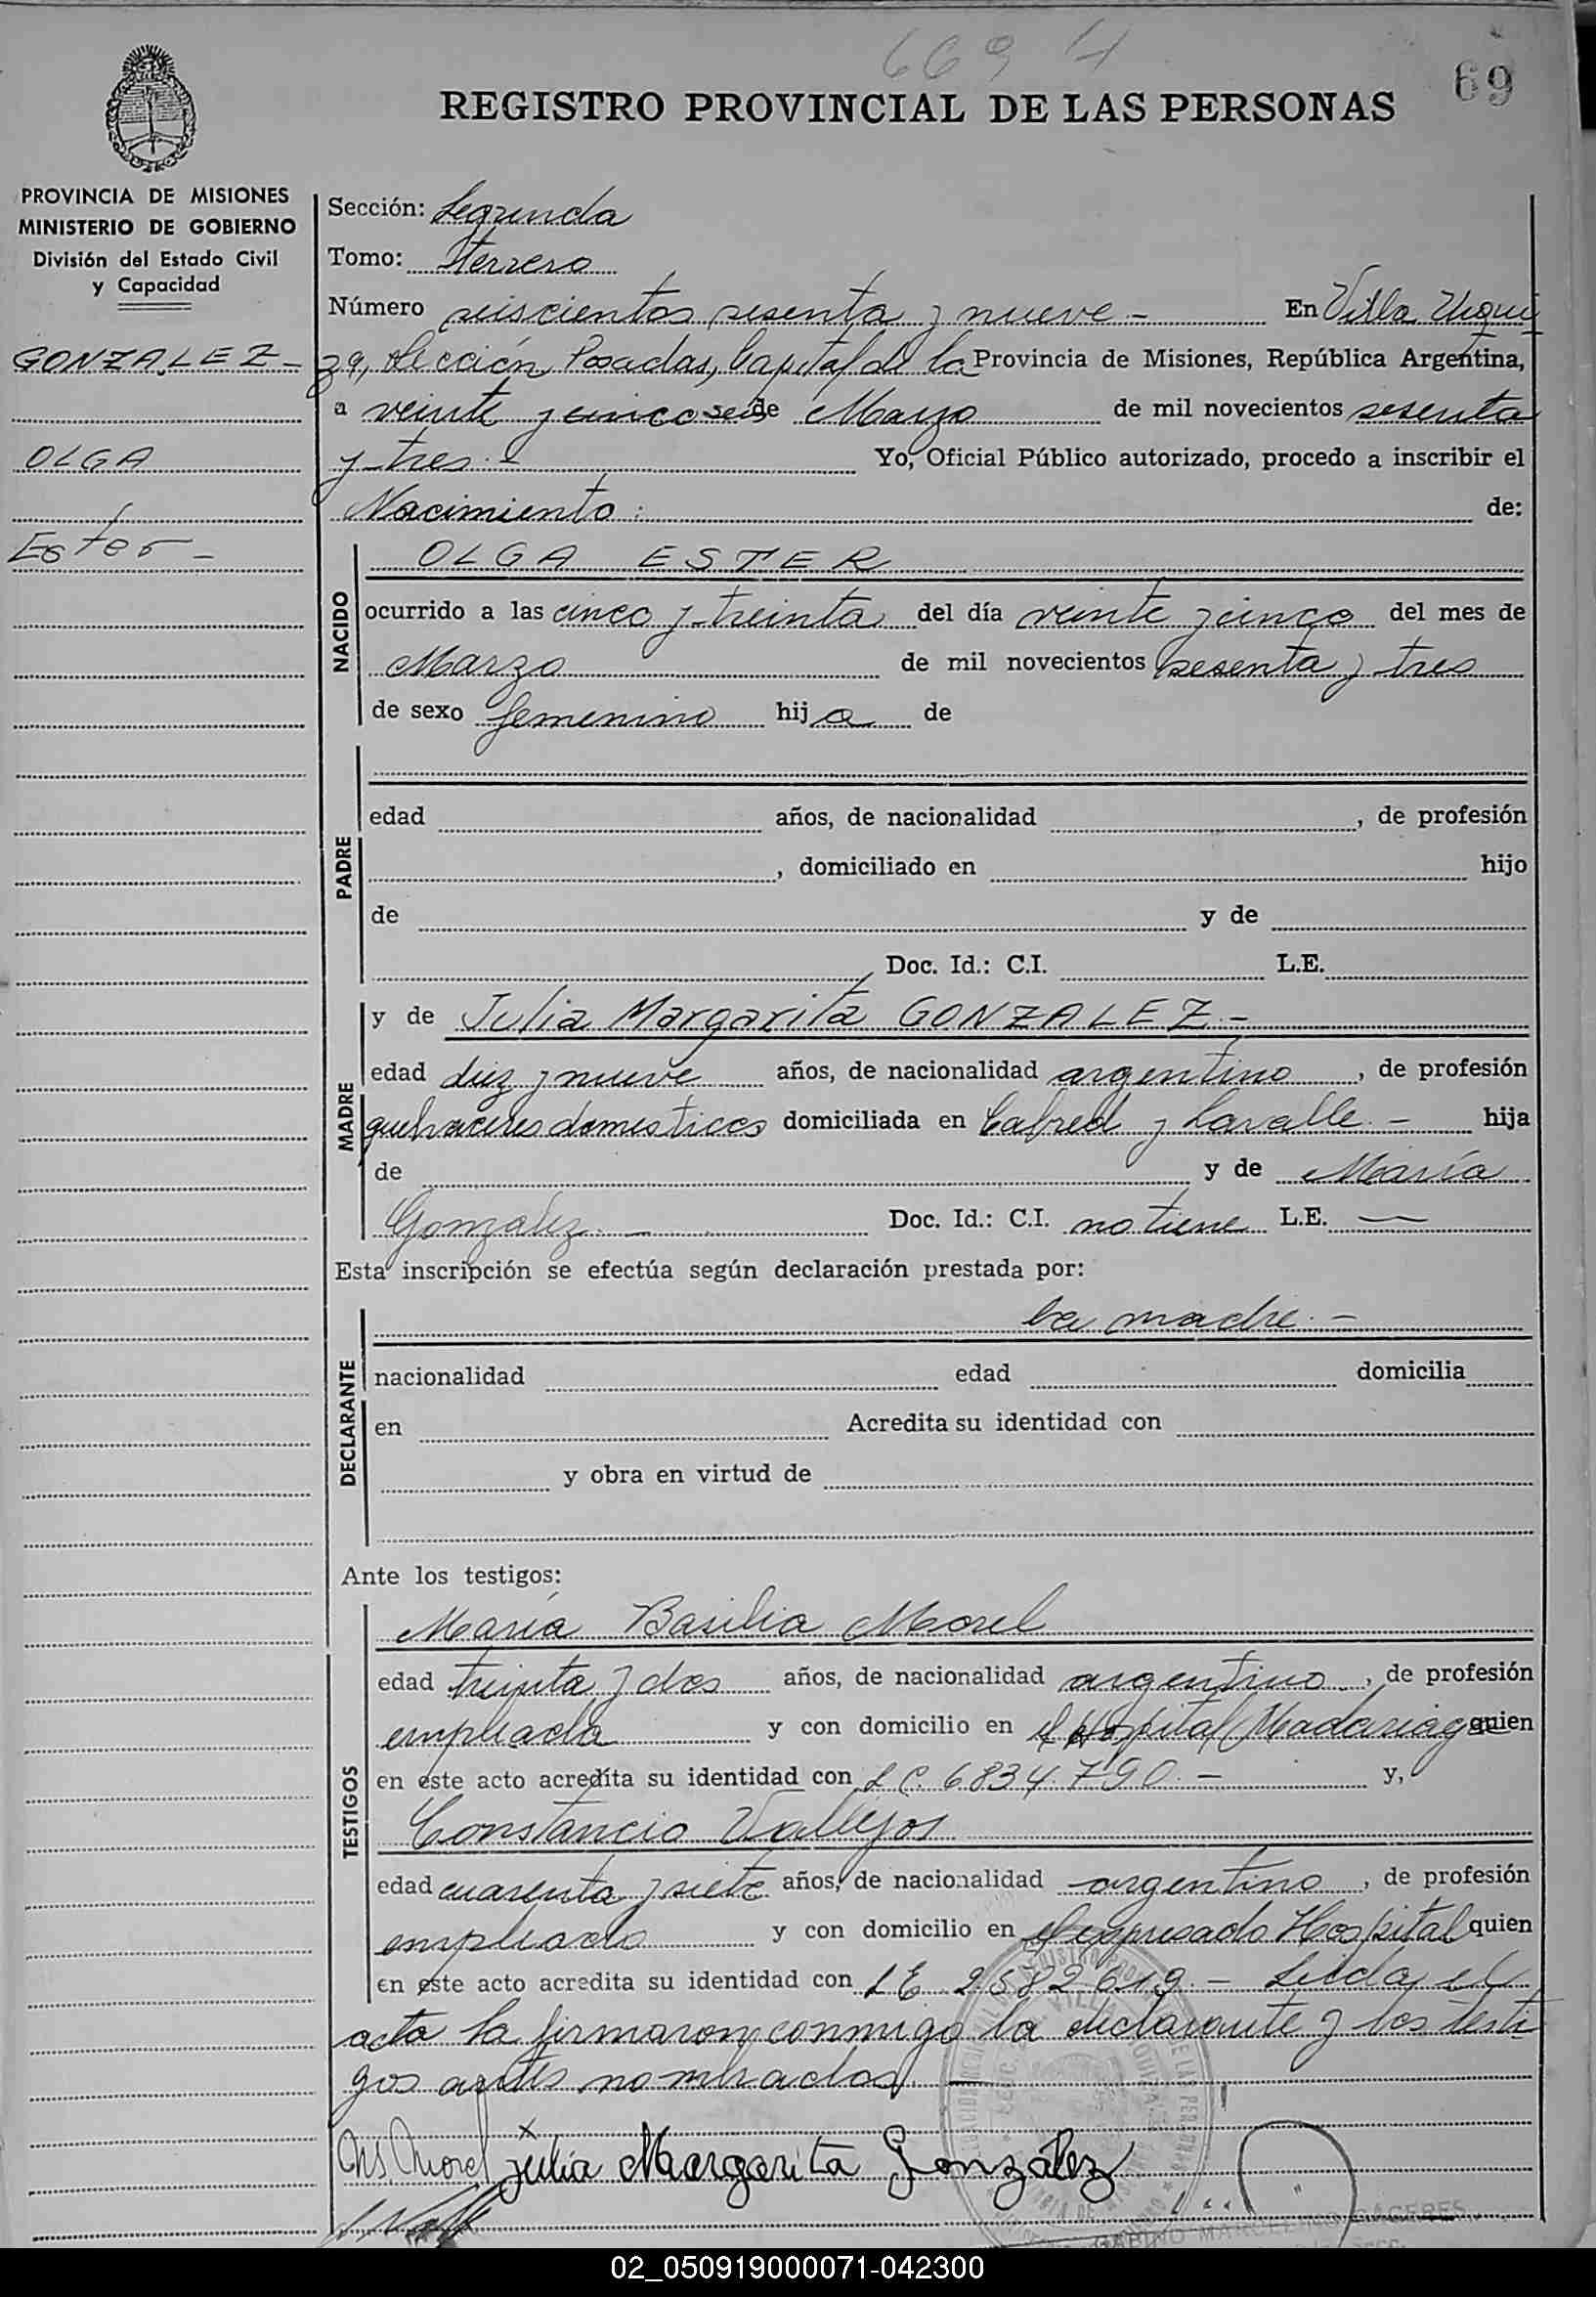 669
69
REGISTRO PROVINCIAL DE LAS PERSONAS
PROVINCIA DE MISIONES
MINISTERIO DE GOBIERNO
División del Estado Civil
y Capacidad
GONZALEZ -
OLGA
Ester -
Sección: Segunda
Tomo: Terrero
Número seiscientos sesenta y nueve - En Villa Urqui
za, Sección Posadas, Capital de la Provincia de Misiones, República Argentina,
a veinte y cinco de Marzo de mil novecientos sesenta
y tres.- Yo, Oficial Público autorizado, procedo a inscribir el
Nacimiento: de:
NACIDO
OLGA ESTER
ocurrido a las cinco y treinta del día veinte y cinco del mes de
Marzo de mil novecientos sesenta y tres
de sexo femenino hija de
PADRE
edad años, de nacionalidad , de profesión
, domiciliado en hijo
de y de
Doc. Id.: C.I. L.E.
MADRE
y de Julia Margarita GONZALEZ.-
edad diez y nueve años, de nacionalidad argentino, de profesión
quehaceres domesticos domiciliada en Cabred y Lavalle.- hija
de y de María
Gonzalez.- Doc. Id.: C.I. no tiene L.E. —
Esta inscripción se efectúa según declaración prestada por:
DECLARANTE
la madre.-
nacionalidad edad domicilia
en Acredita su identidad con
y obra en virtud de
Ante los testigos:
TESTIGOS
María Basilia Morel
edad treinta y dos años, de nacionalidad argentino, de profesión
empleada y con domicilio en el Hospital Madariaga quien
en este acto acredita su identidad con L C. 6834.790.- y,
Constancio Vallejos
edad cuarenta y siete años, de nacionalidad argentino, de profesión
empleado y con domicilio en el expresado Hospital quien
en este acto acredita su identidad con L E 2582619.- Leida el
acta la firmaron conmigo la declarante y los testi
gos antes nombrados. —
Morel Julia Margarita González
MARCELINO CACERES
02_050919000071-042300